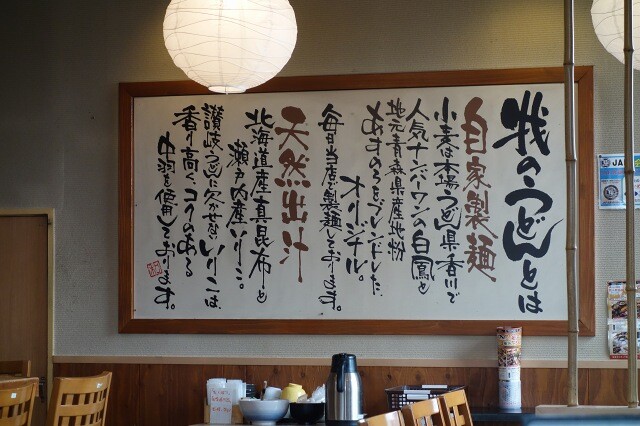 我のうどんとは
自家製麺
小麦は本場うどん県香川で
人気ナンバーワンの白鳳と
地元青森県産地粉
あすのちをブレンドした、
オリジナル。
毎日当店で製麺しております。
天然出汁
北海道産真昆布と
瀬戸内産いりこ。
讃岐うどんに欠かせないいりこは、
香り高く、コクのある
中羽を使用しております。
JA